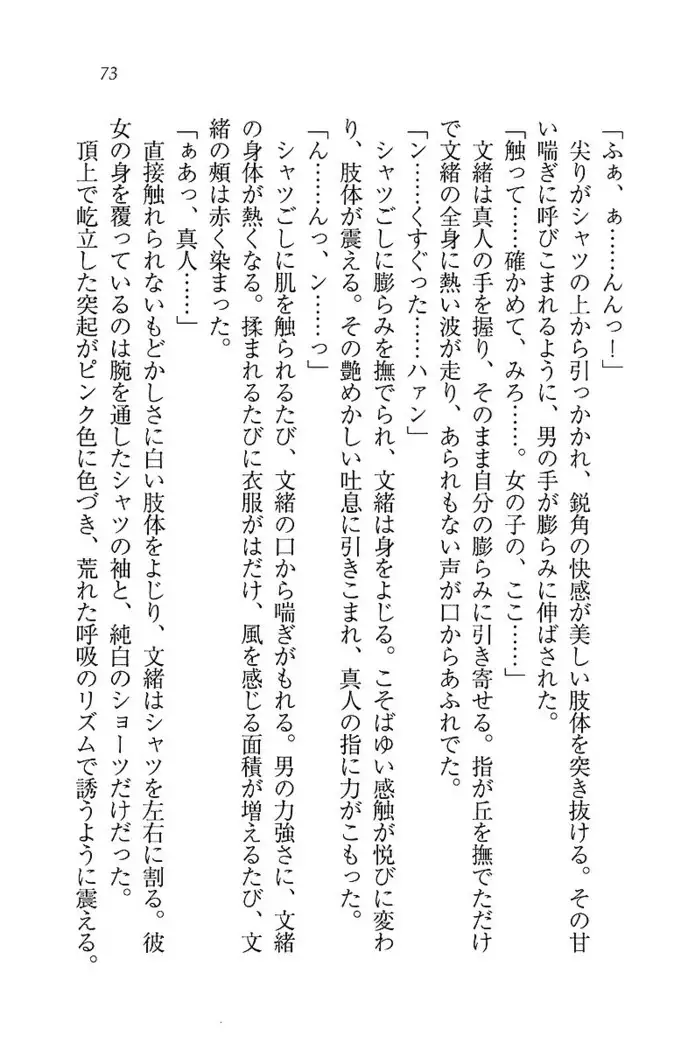 73
「ふぁ、ぁ……んんっ！」
尖りがシャツの上から引っかかれ、鋭角の快感が美しい肢体を突き抜ける。その甘
い喘ぎに呼びこまれるように、男の手が膨らみに伸ばされた。
「触って……確かめて、みろ……。女の子の、ここ……」
文緒は真人の手を握り、そのまま自分の膨らみに引き寄せる。指が丘を撫でただけ
で文緒の全身に熱い波が走り、あられもない声が口からあふれでた。
「ン……くすぐった……ハァン」
シャツごしに膨らみを撫でられ、文緒は身をよじる。こそばゆい感触が悦びに変わ
り、肢体が震える。その艶めかしい吐息に引きこまれ、真人の指に力がこもった。
「ん……んっ、ン……っ」
シャツごしに肌を触られるたび、文緒の口から喘ぎがもれる。男の力強さに、文緒
の身体が熱くなる。揉まれるたびに衣服がはだけ、風を感じる面積が増えるたび、文
緒の頬は赤く染まった。
「ぁあっ、真人……」
直接触れられないもどかしさに白い肢体をよじり、文緒はシャツを左右に割る。彼
女の身を覆っているのは腕を通したシャツの袖と、純白のショーツだけだった。
頂上で屹立した突起がピンク色に色づき、荒れた呼吸のリズムで誘うように震える。